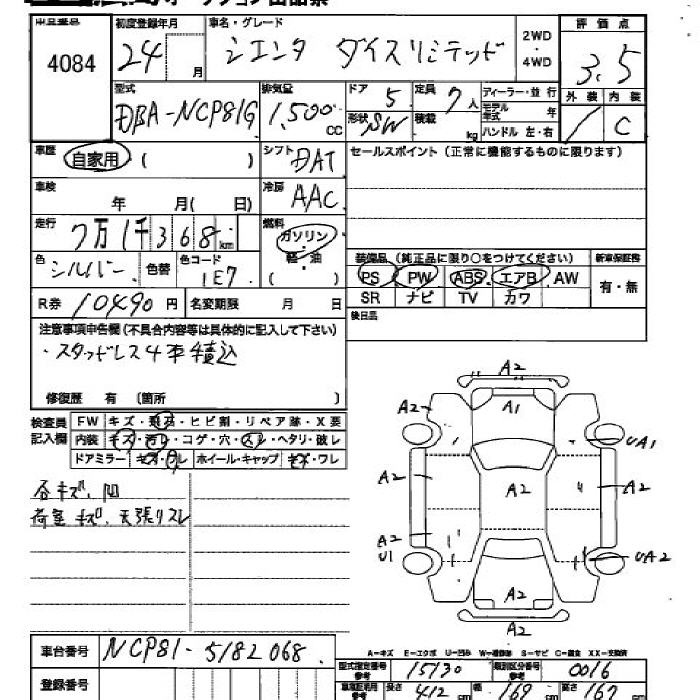 4084
初度登録年月
24
月
車名・グレード
シエンタ ダイスリミテッド
2WD
・
4WD
評価点
3.5
外装 内装
C
型式
DBA-NCP81G
排気量
1,500
CC
ドア
5
形状
SW
定員
7人
積載
kg
ディーラー・並行
モデル年式 年
ハンドル 左・右
車歴
自家用 ( )
シフト
DAT
セールスポイント (正常に機能するものに限ります)
車検
年 月( 日)
冷房
AAC
走行
7万1千368km
燃料
ガソリン
軽・油
色
シルバー
色替
色コード
1E7
装備品 (純正品に限り○をつけてください)
新車保証書
PS PW ABS エアB AW
SR ナビ TV カワ
有・無
R券 10490円
名変期限 月 日
後日品
注意事項申告欄(不具合内容等は具体的に記入して下さい)
・スタッドレス4本積込
修復歴 有 (箇所 )
検査員記入欄
FW キズ・飛石・ヒビ割・リペア跡・X要
内装 キズ・汚レ・コゲ・穴・スレ・ヘタリ・破レ
ドアミラー キズ・ワレ ホイール・キャップ キズ・ワレ
各キズ、凹
荷室キズ、天張リスレ
A2
A2
A1
UA1
A2
A2
A2
A2
U1
UA2
A2
A2
A-キズ E-エクボ U-凹み W-補修跡 S-サビ C-腐食 XX-交換済
車台番号
NCP81-5182068
型式指定番号
参考
15130
類別区分番号
参考
0016
登録番号
長さ 412 cm
幅 169 cm
高さ 167 cm